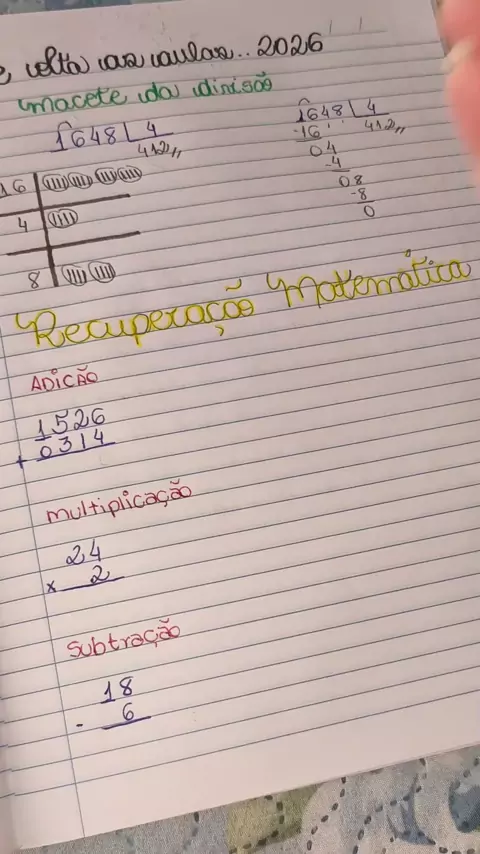 volta às aulas... 2026
macete da divisão
1648 4
412,,
16
4
8
1648 4
-16 412,,
04
-4
08
-8
0
Recuperação Matemática
ADIÇÃO
1526
+ 0314
multiplicação
24
x 2
subtração
18
- 6